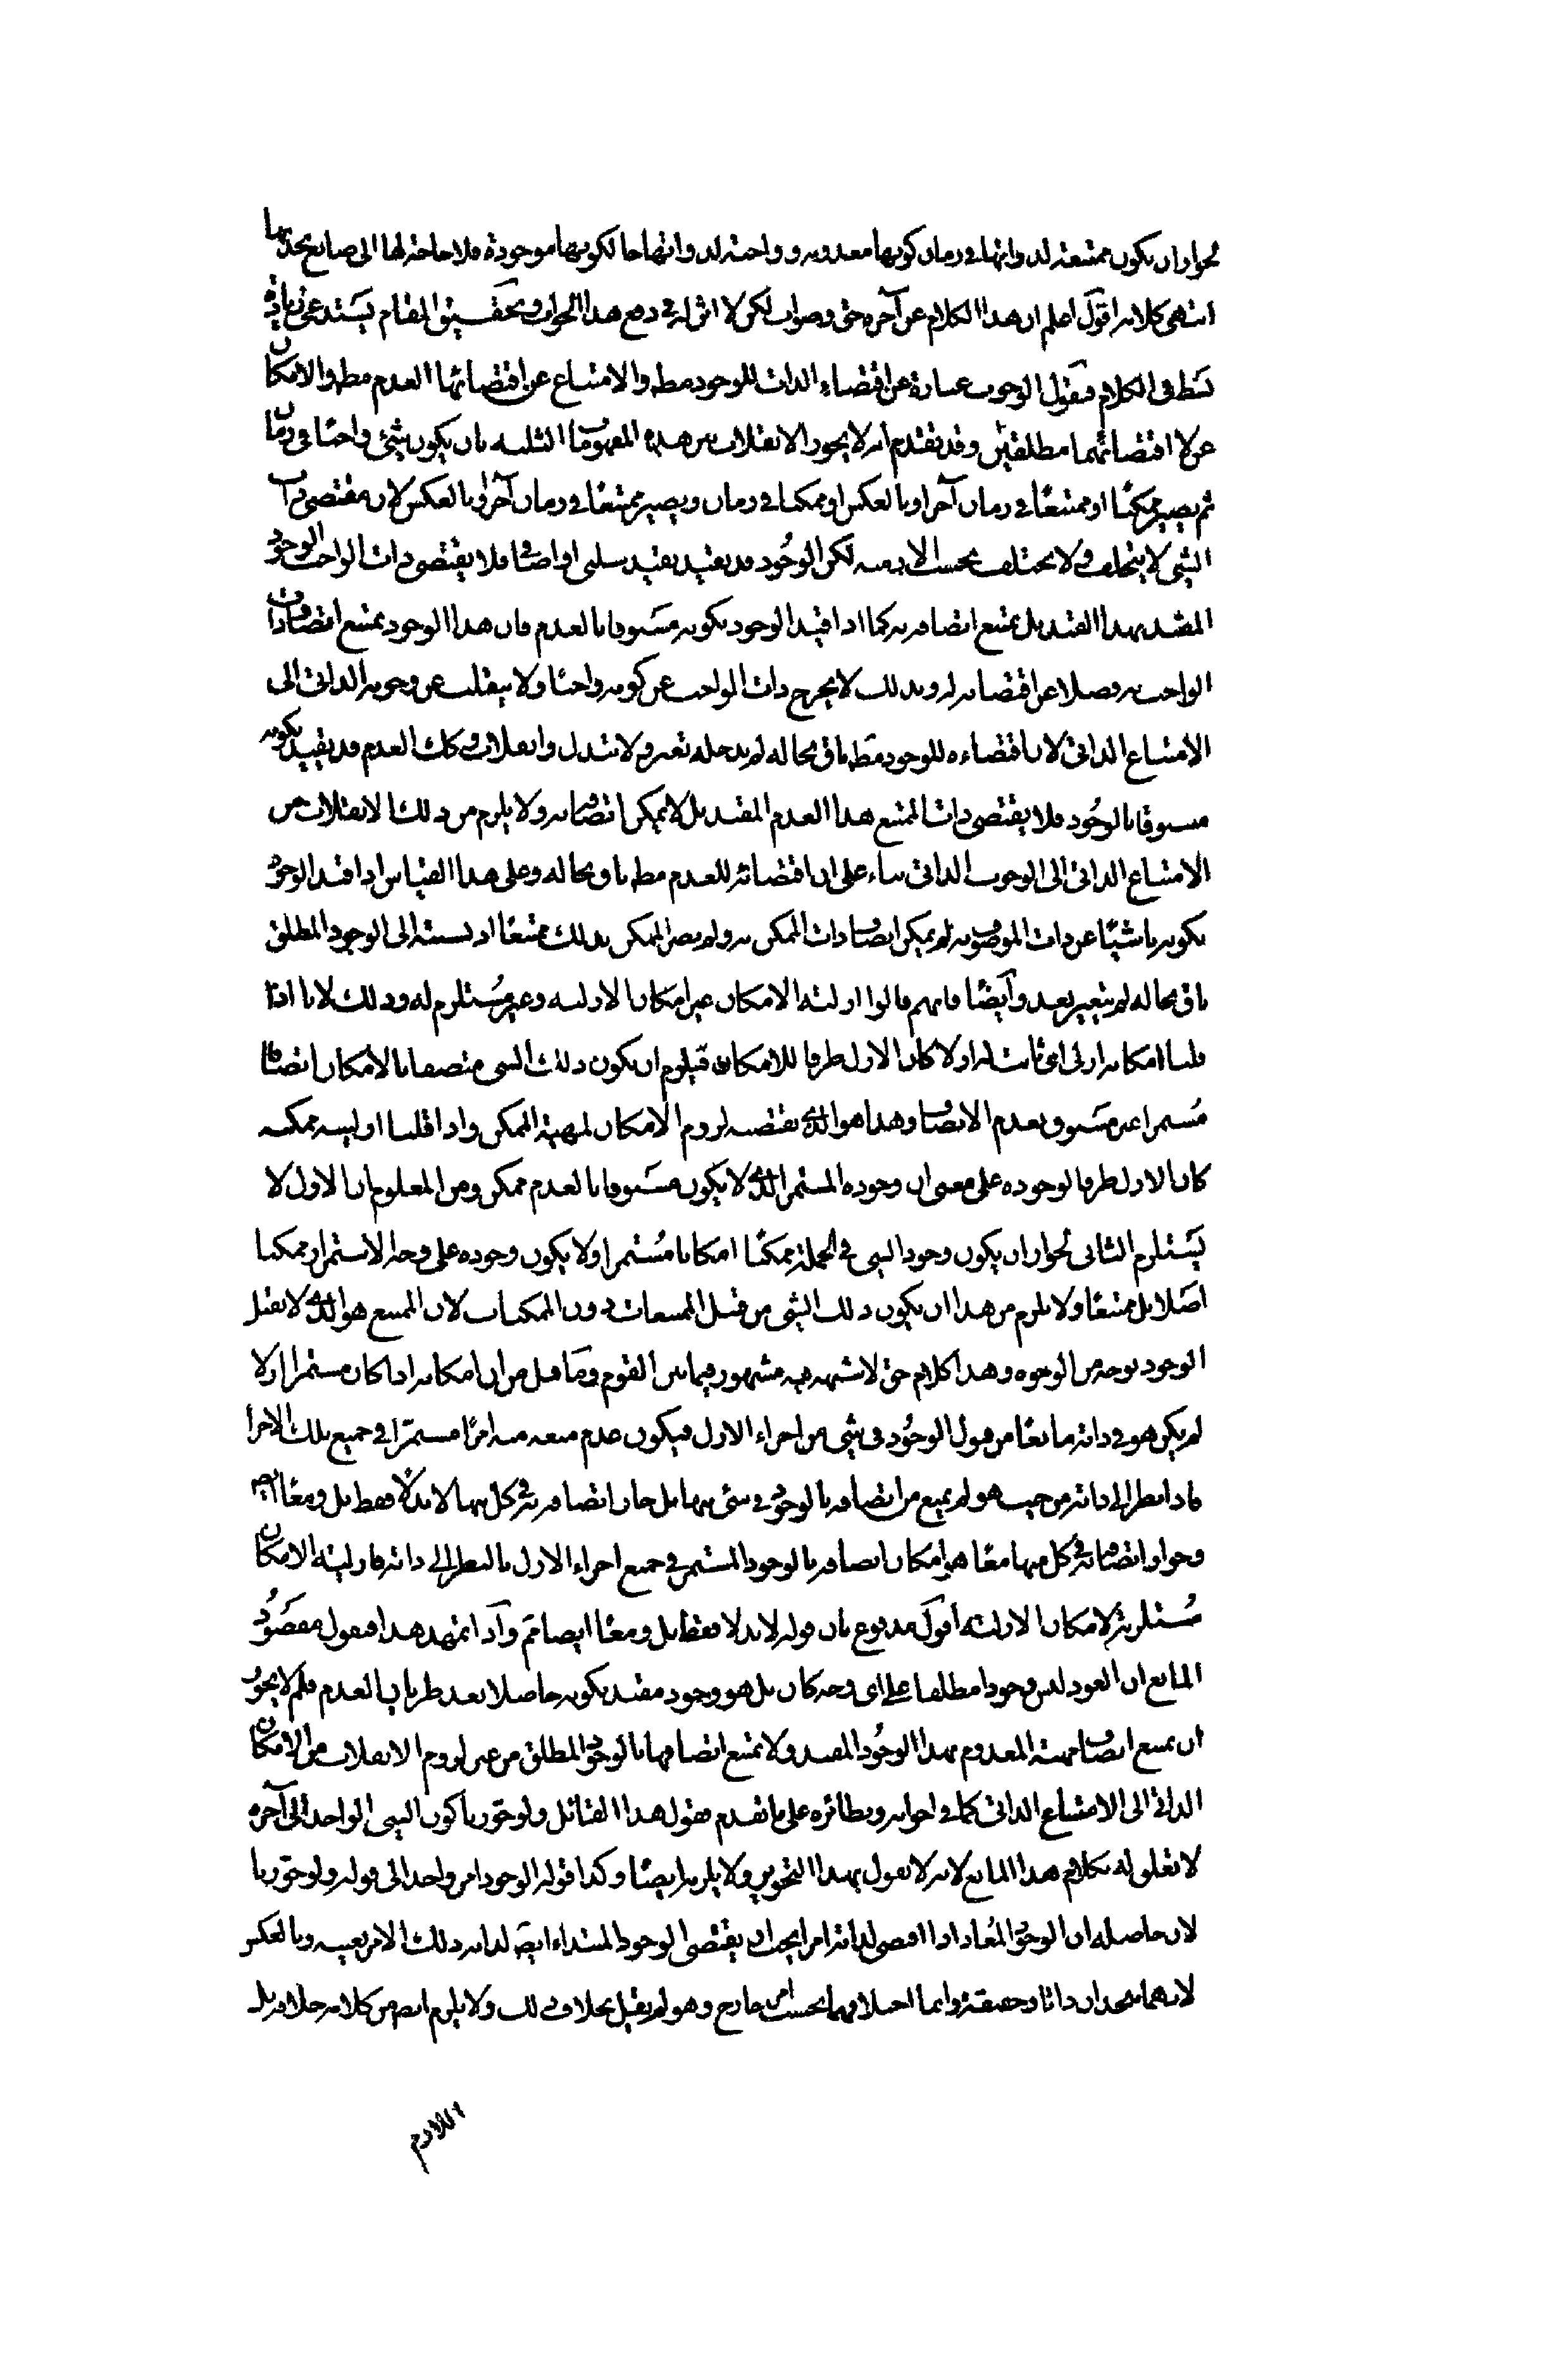 لجواز ان يكون ممتنعة لذواتها في زمان كونها معدومة وواجبة لذواتها حال كونها موجودة فلا حاجة لها الى صانع يحدثها
انتهى كلامه اقول اعلم ان هذا الكلام عن آخره حق وصواب لكن لا اثر له في دفع هذا الجواب وتحقيق المقام يستدعي زيادة
بسط في الكلام فنقول الوجوب عبارة عن اقتضاء الذات للوجود مطه والامتناع عن اقتضائها العدم مطه والامكان
عن لا اقتضائهما مطلقين وقد تقدم انه لا يجوز الانقلاب بين هذه المفهومات الثلثه بان يكون شيئ واجبا في زمان
ثم يصير ممكنًا او ممتنعًا في زمان آخر او بالعكس او ممكنا في زمان ويصير ممتنعًا في زمان آخر او بالعكس لان مقتضى ذات
الشيئ لا يتخلف ولا يختلف بحسب الازمنه لكن الوجُود قد يقيد بقيد سلبي او اضافي فلا يقتضي ذات الواجب الوجود
المقيد بهذا القيد بل يمتنع اتصافه به كما اذا قيد الوجود بكونه مسبوقا بالعدم فان هذا الوجود يمتنع اتصاف ذات
الواجب به فضلا عن اقتضائه له وبذلك لا يخرج ذات الواجب عن كونه واجبًا ولا ينقلب عن وجوبه الذاتي الى
الامتناع الذاتي لان اقتضاءه للوجود مطه باق بحاله لم يدخله تغير ولا تبدل وانقلاب وكك العدم قد يقيد بكونه
مسبوقا بالوجُود فلا يقتضي ذات الممتنع هذا العدم المقيد بل لا يمكن اتصافه به ولا يلزم من ذلك الانقلاب من
الامتناع الذاتي الى الوجوب الذاتي بناء على ان اقتضائه للعدم مطه باق بحاله وعلى هذا القياس اذا قيد الوجود
بكونه ناشيًا عن ذات الموصوف به لم يمكن اتصاف ذات الممكن به ولم يصر الممكن بذلك ممتنعًا اذ نسبته الى الوجود المطلق
باق بحاله لم يتغير بعد وآيضًا فانهم قالوا ازلية الامكان غير امكان الازليه وغير مُستلزم له وذلك لانا اذا
قلنا امكانه ازلي اي ثابت له ازلا كان الازل ظرفا للامكان فيلزم ان يكون ذلك الشي متصفا بالامكان اتصافا
مُستمرا غير مسَبوق بعدم الاتصاف وهذا هو الذي يقتضيه لزوم الامكان لمهية الممكن واذا قلنا ازليته ممكنه
كان الازل ظرفا لوجوده على معنى ان وجوده المستمر الذي لا يكون مسَبوقا بالعدم ممكن ومن المعلوم ان الاول لا
يسَتلزم الثاني لجواز ان يكون وجود الشي في الجملة ممكنًا امكانا مُستمرا ولا يكون وجوده على وجه الاستمرار ممكنا
اصَلا بل ممتنعًا ولا يلزم من هذا ان يكون ذلك الشيئ من قبيل الممتنعات دون الممكنات لان الممتنع هو الذي لا يقبل
الوجود بوجه من الوجوه وهذا كلام حق لا شبهه فيه مشهور فيما بين القوم ومَا قيل من ان امكانه اذا كان مستمرا ازلا
لم يكن هو في ذاته مانعًا من قبول الوجُود في شيئ من اجزاء الازل فيكون عدم منعه منه امرًا مستمرًا في جميع تلك الاجزاء
فاذا نظر الى ذاته من حيث هو لم يمنع من اتصافه بالوجود في شئ منها بل جاز اتصافه به في كل منها لا بدلا فقط بل ومعًا ايضا
وجواز اتصافه به في كل منها معًا هو امكان اتصافه بالوجود المستمر في جميع اجزاء الازل بالنظر الى ذاته فازلية الامكان
مُستلزمة لامكان الازلية أقول مدفوع بان قوله لا بدلا فقط بل ومعًا ايضا مم وآذا تمهد هذا فنقول مقصَود
المانع ان العود ليس وجودا مطلقا على اي وجه كان بل هو وجود مقيد بكونه حاصلا بعد طريان العدم فلم لا يجوز
ان يمتنع اتصاف مهية المعدوم بهذا الوجُود المقيد ولا يمتنع اتصافها بالوجود المطلق من غير لزوم الانقلاب من الامكان
الذاتي الى الامتناع الذاتي كما في اخواته ونظائره على ما تقدم فقول هذا القائل ولو جوزنا كون الشي الواحد الى آخره
لا تعلق له بكلام هذا المانع لانه لا يقول بهذا التجويز ولا يلزمه ايضًا وكذا قوله الوجود امر واحد الى قوله ولو جوزنا
لان حاصله ان الوجود المُعاد اذا اقتضى لذاته امرا يجب ان يقتضي الوجود المبتداء ايضا لذاته ذلك الامر بعينه وبالعكس
لانهما متحدان ذاتا وحقيقة وانما اختلافهما بحسب امر خارج وهو لم يقل بخلاف ذلك ولا يلزم ايضا من كلامه خلافه بل
اللازم